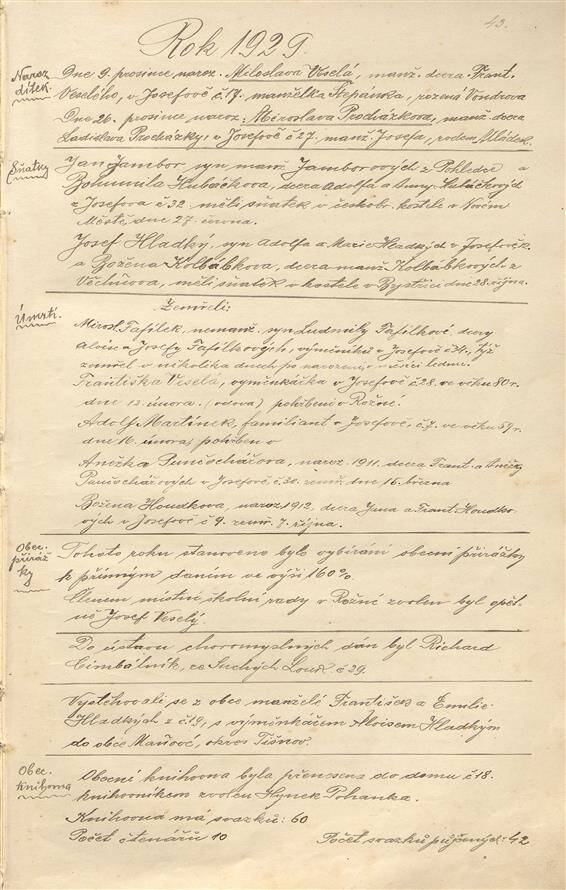 43.
Rok 1929.
Naroz.
dítek.
Dne 9. prosince naroz. Miloslava Veselá, manž. dcera Frant.
Veselého, v Josefově č. 17. manželka Štěpánka, rozená Vondrova
Dne 26. prosince naroz: Miroslava Procházkova, manž. dcera
Ladislava Procházky, v Josefově č 27. manž. Josefa, rodem Mládek.
Sňatky
Jan Jambor syn manž Jamborových z Pohledce a
Bohumila Hubáčkova, dcera Adolfa a Anny Hubáčkových
z Josefova č. 32 měli sňatek v českobr. kostele v Novém
Městě, dne 27. února.
Josef Hladký, syn Adolfa a Marie Hladkých v Josefově č.
a Božena Kolbábkova, dcera manž Kolbábkových z
Věchnova, měli sňatek v kostele v Bystřici dne 28. října.
Úmrtí.
Zemřeli:
Mirosl. Tafílek, nemanž. syn Ludmily Tafílkové dcery
Aloise a Josefy Tafílkových, výměníků v Josefově č 34., týž
zemřel v několika dnech po narození v měsíci lednu.
Františka Veselá, výměnkářka v Josefově č 28. ve věku 80 r.
dne 12. února. (vdova) pohřbení v Rožné.
Adolf Martínek, familiant v Josefově, č. 7. ve věku 59 r.
dne 16. února, pohřben v
Anežka Punčochářova, naroz. 1911. dcera Frant. a Anežky
Punčochářových v Josefově, č. 30. zemř. dne 16. března
Božena Houdkova, naroz 1912, dcera Jana a Frant. Houdko-
vých v Josefově č 9. zemř. 7. října.
Obec.
přiráž
ky
Tohoto roku stanoveno bylo vybírání obecní přirážky
k přímným daním ve výši 160%.
Členem místní školní rady v Rožné zvolen byl opět-
ně Josef Veselý.
Do ústavu choromyslných dán byl Richard
Cimbálník, ze Suchých Louk č. 29.
Vystěhovali se z obce manželé František a Emilie
Hladkých z č. 9, s výměnkářem Aloisem Hladkým
do obce Maňové, okres Tišnov.
Obec.
knihovna
Obecní knihovna byla přenesena do domu č 18.
knihovníkem zvolen Hynek Pohanka.
Knihovna má svazků: 60
Počet čtenářů 10 Počet svazků půjčených: 42